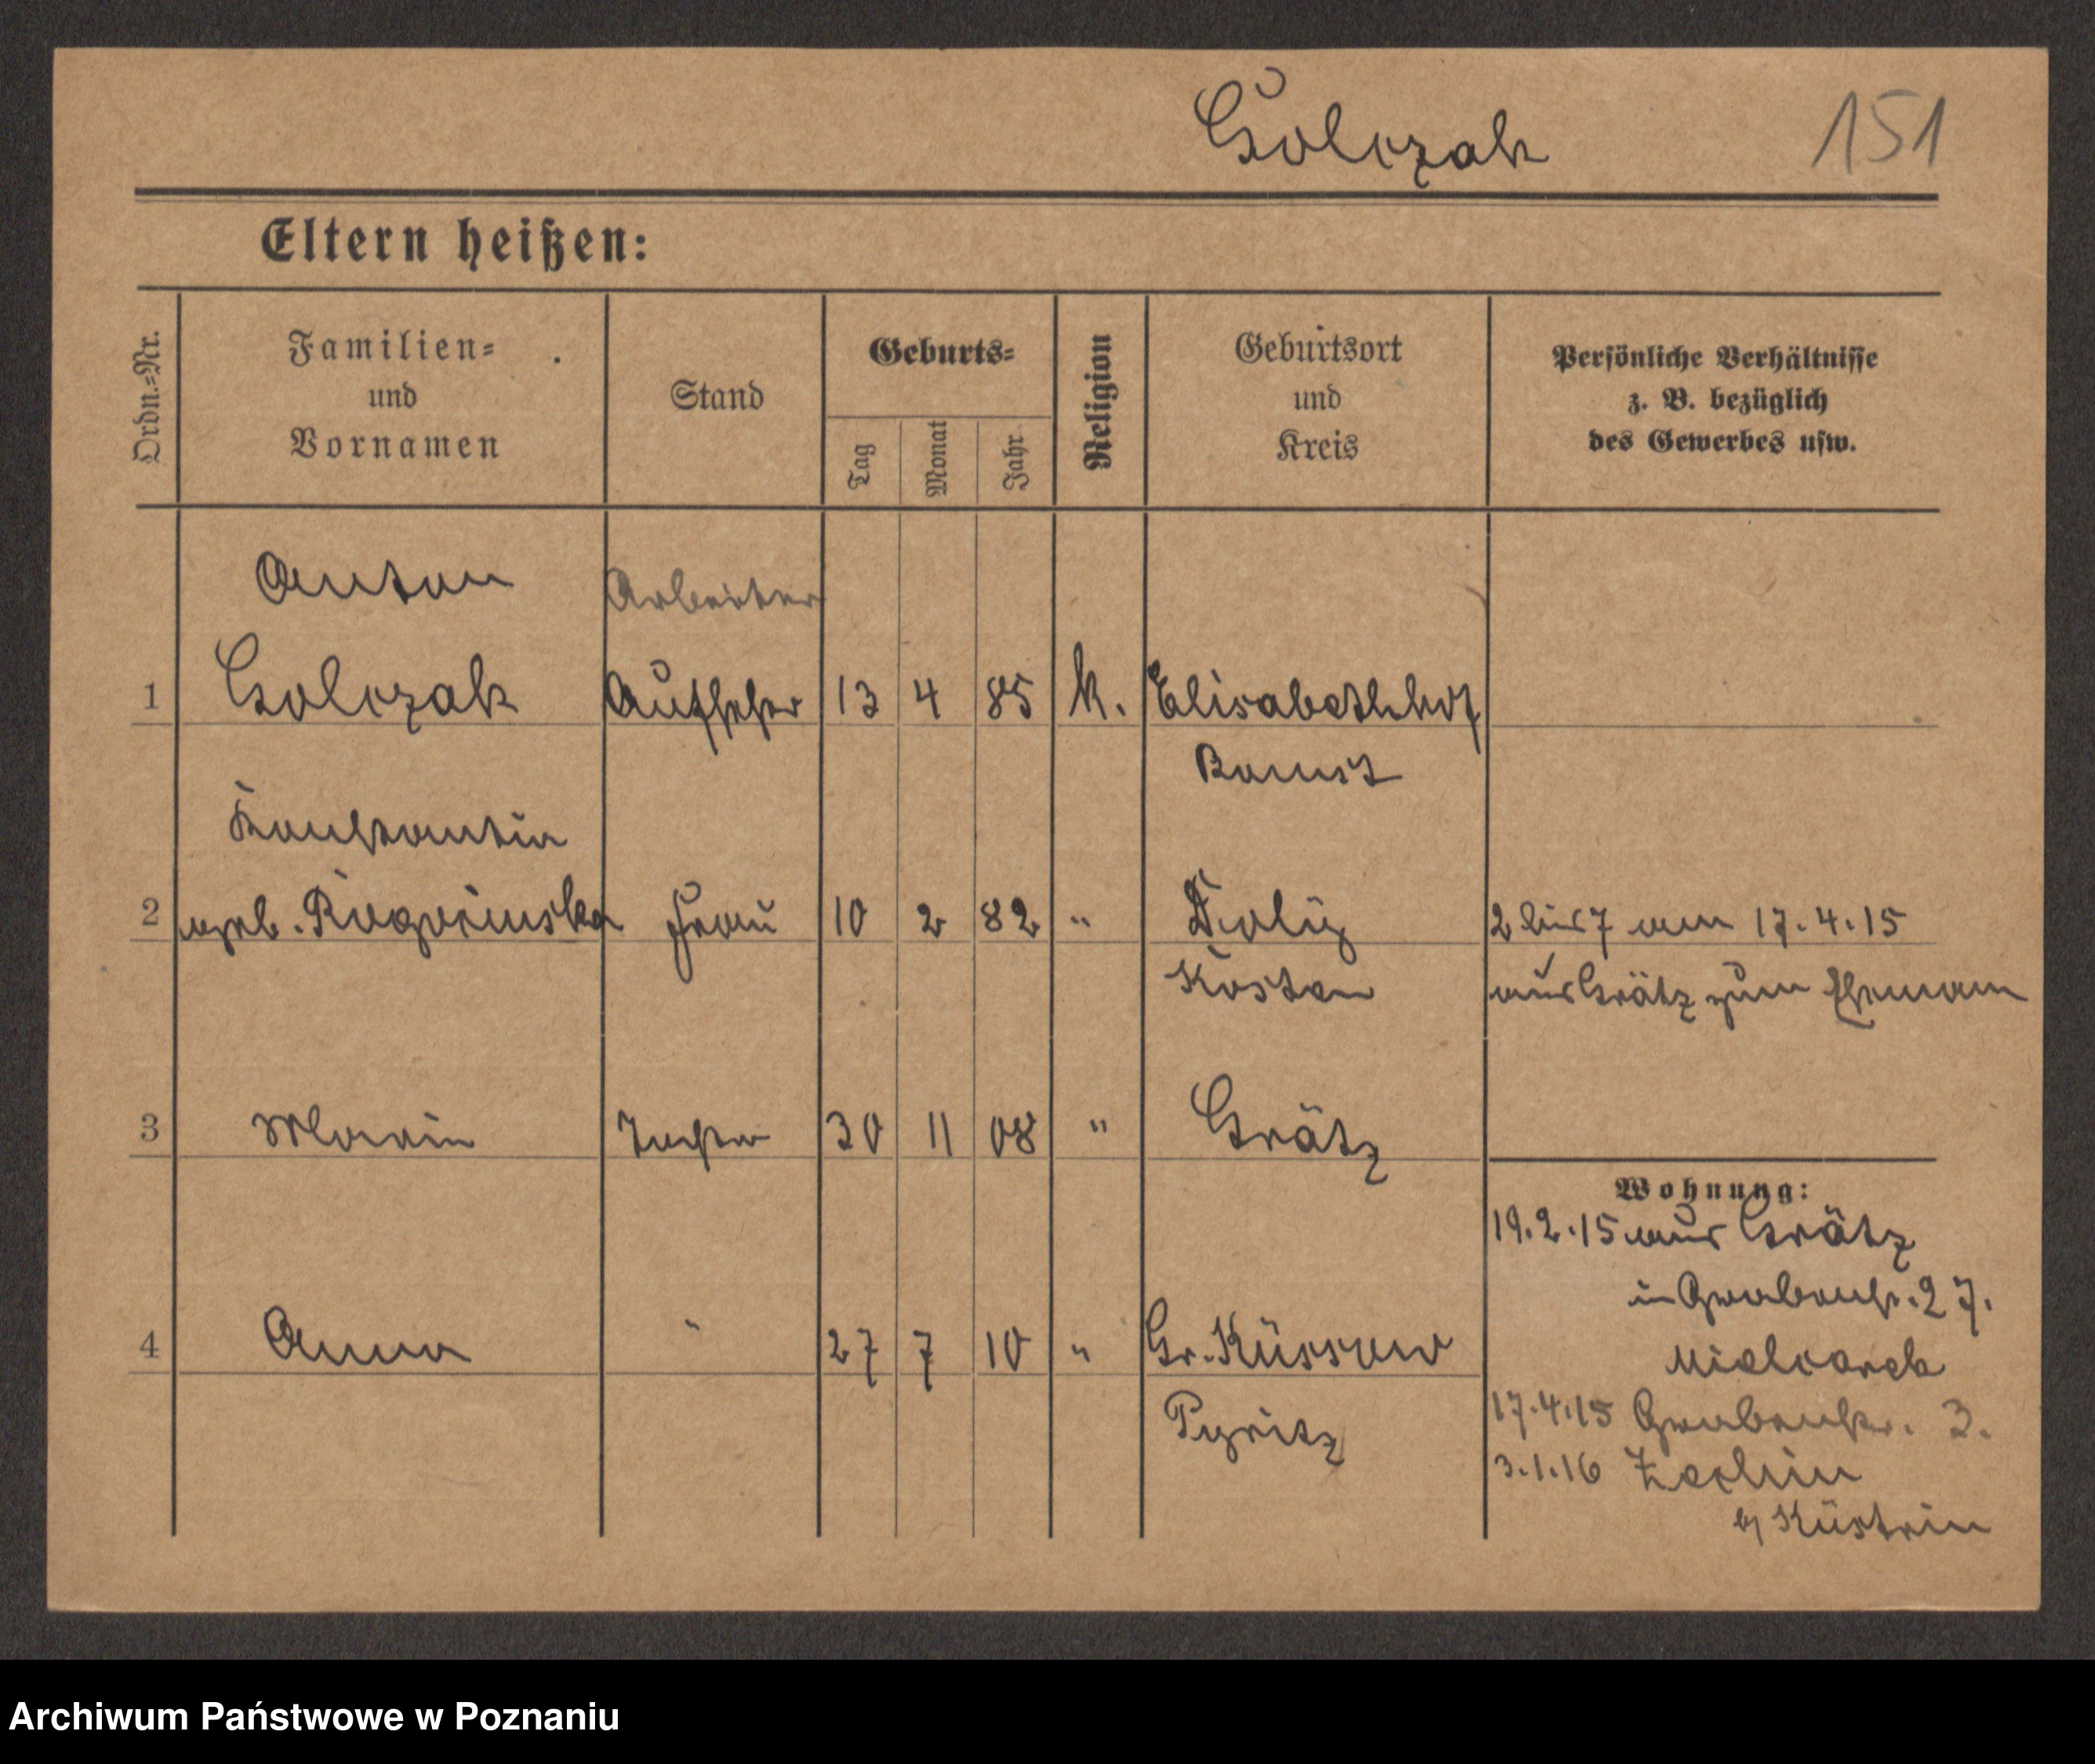 Golczak 151
Eltern heißen:
Ordn.=Nr.
Familien=
und
Vornamen
Stand
Geburts=
Tag
Monat
Jahr
Religion
Geburtsort
und
Kreis
Persönliche Verhältnisse
z. B. bezüglich
des Gewerbes usw.
Anton Arbeiter
1 Golczak Aufseher 13 4 85 k. Elisabethhof
Bomst
Konstantia
2 geb. Frau 10 2 82 " 2 bis 7 am 17.4.15
Kosten aus Grätz zum Ehemann
3 Maria Tochter 30 11 08 " Grätz
Wohnung:
19.2.15 aus Grätz
in Grabenstr. 27.
4 Anna " 27 7 10 " Gr. Küssow Mielcarek
Pyritz 17.4.15 Grabenstr. 3.
3.1.16 Zechin
b/ Küstrin
Archiwum Państwowe w Poznaniu